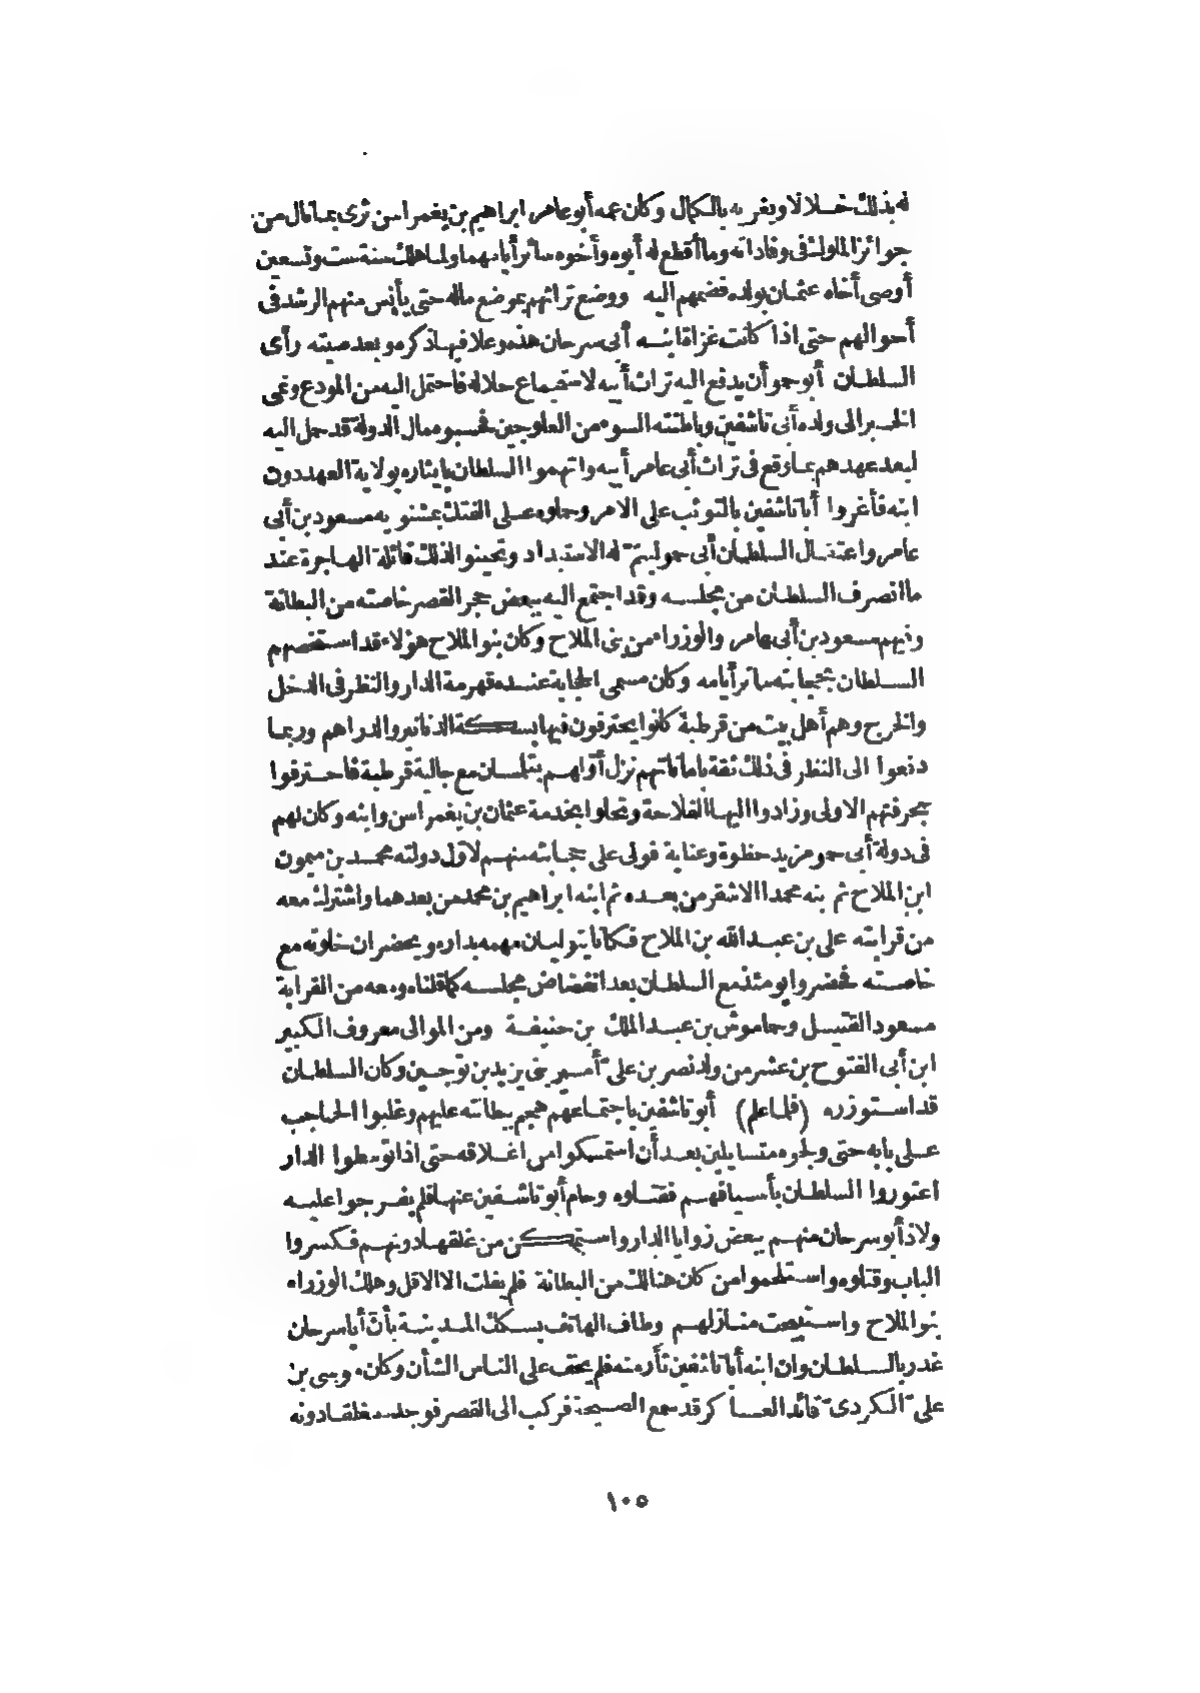 له بذلك خلالا ويغريه بالكمال وكان عمه أبو عامر ابراهيم بن يغمراسن ثرى بما نال من
جوائز الملوك فى وفاداته وما أقطع له أبوه وأخوه سائر أيامهما ولما هلك سنة ست وتسعين
أوصى أخاه عثمان بولده فضمهم اليه ووضع تراثهم بموضع ماله حتى يأنس منهم الرشد فى
أحوالهم حتى اذا كانت غزاة ابنه أبى سرحان هذه وعلا فيها ذكره وبعد صيته رأى
السلطان أبو حمو أن يدفع اليه تراث أبيه لاستجماع خلاله فاحتمل اليه من المودع ونمى
الخبر الى ولده أبى تاشفين وباطنته السوء من العلوجين فحسبوه مال الدولة قد حمل اليه
لبعد عهدهم بما وقع فى تراث أبى عامر أبيه واتهموا السلطان بايثاره بولاية العهد دون
ابنه فأغروا أبا تاشفين بالتوثب على الامر وحملوه على الفتك بمشنويه مسعود بن أبى
عامر واعتقال السلطان أبى حمو ليتمّ له الاستبداد وتحينوا لذلك قائلة الهاجرة عند
ما انصرف السلطان من مجلسه وقد اجتمع اليه ببعض حجر القصر خاصته من البطانة
وفيهم مسعود بن أبى عامر والوزراء من بنى الملاح وكان بنو الملاح هؤلاء قد استخصهم
السلطان بحجابته سائر أيامه وكان مسمى الحجابة عنده قهرمة الدار والنظر فى الدخل
والخرج وهم أهل بيت من قرطبة كانوا يحترفون فيها بسكة الدنانير والدراهم وربما
دفعوا الى النظر فى ذلك ثقة بأماناتهم نزل أوّلهم بتلمسان مع جالية قرطبة فاحترفوا
بحرفتهم الاولى وزادوا اليها الفلاحة وتحلوا بخدمة عثمان بن يغمراسن وابنه وكان لهم
فى دولة أبى حمو مزيد حظوة وعناية فولى على حجابته منهم لاوّل دولته محمد بن ميمون
ابن الملاح ثم بنه محمدا الاشقر من بعده ثم ابنه ابراهيم بن محمد من بعدهما واشترك معه
من قرابته على بن عبد الله بن الملاح فكانا يتوليان مهمه بداره ويحضران خلوته مع
خاصته فحضروا يومئذ مع السلطان بعد انفضاض مجلسه كما قلناه ومعه من القرابة
مسعود القتيل وحماموش بن عبد الملك بن حنيفة ومن الموالى معروف الكبير
ابن أبى الفتوح بن عشر من ولد نصر بن علىّ أمير بنى يزيد بن توجين وكان السلطان
قد استوزره (فلما علم) أبو تاشفين باجتماعهم هجم ببطانته عليهم وغلبوا الحاجب
على بابه حتى ولجوه متسايلين بعد أن استمسكوا من اغلاقه حتى اذا توسطوا الدار
اعتوروا السلطان بأسيافهم فقتلوه وحام أبو تاشفين عنها فلم يفرجوا عليه
ولاذ أبو سرحان منهم ببعض زوايا الدار واستمكن من غلقها دونهم فكسروا
الباب وقتلوه واستلحموا من كان هنالك من البطانة فلم يفلت الا الاقل وهلك الوزراء
بنو الملاح واستبيحت منازلهم وطاف الهاتف بسكك المدينة بأن أبا سرحان
غدر بالسلطان وان ابنه أبا تاشفين ثأر منه فلم يخف على الناس الشأن وكان موسى بن
علىّ الكردىّ قائد العساكر قد سمع الصيحة فركب الى القصر فوجده مغلقا دونه
١٠٥